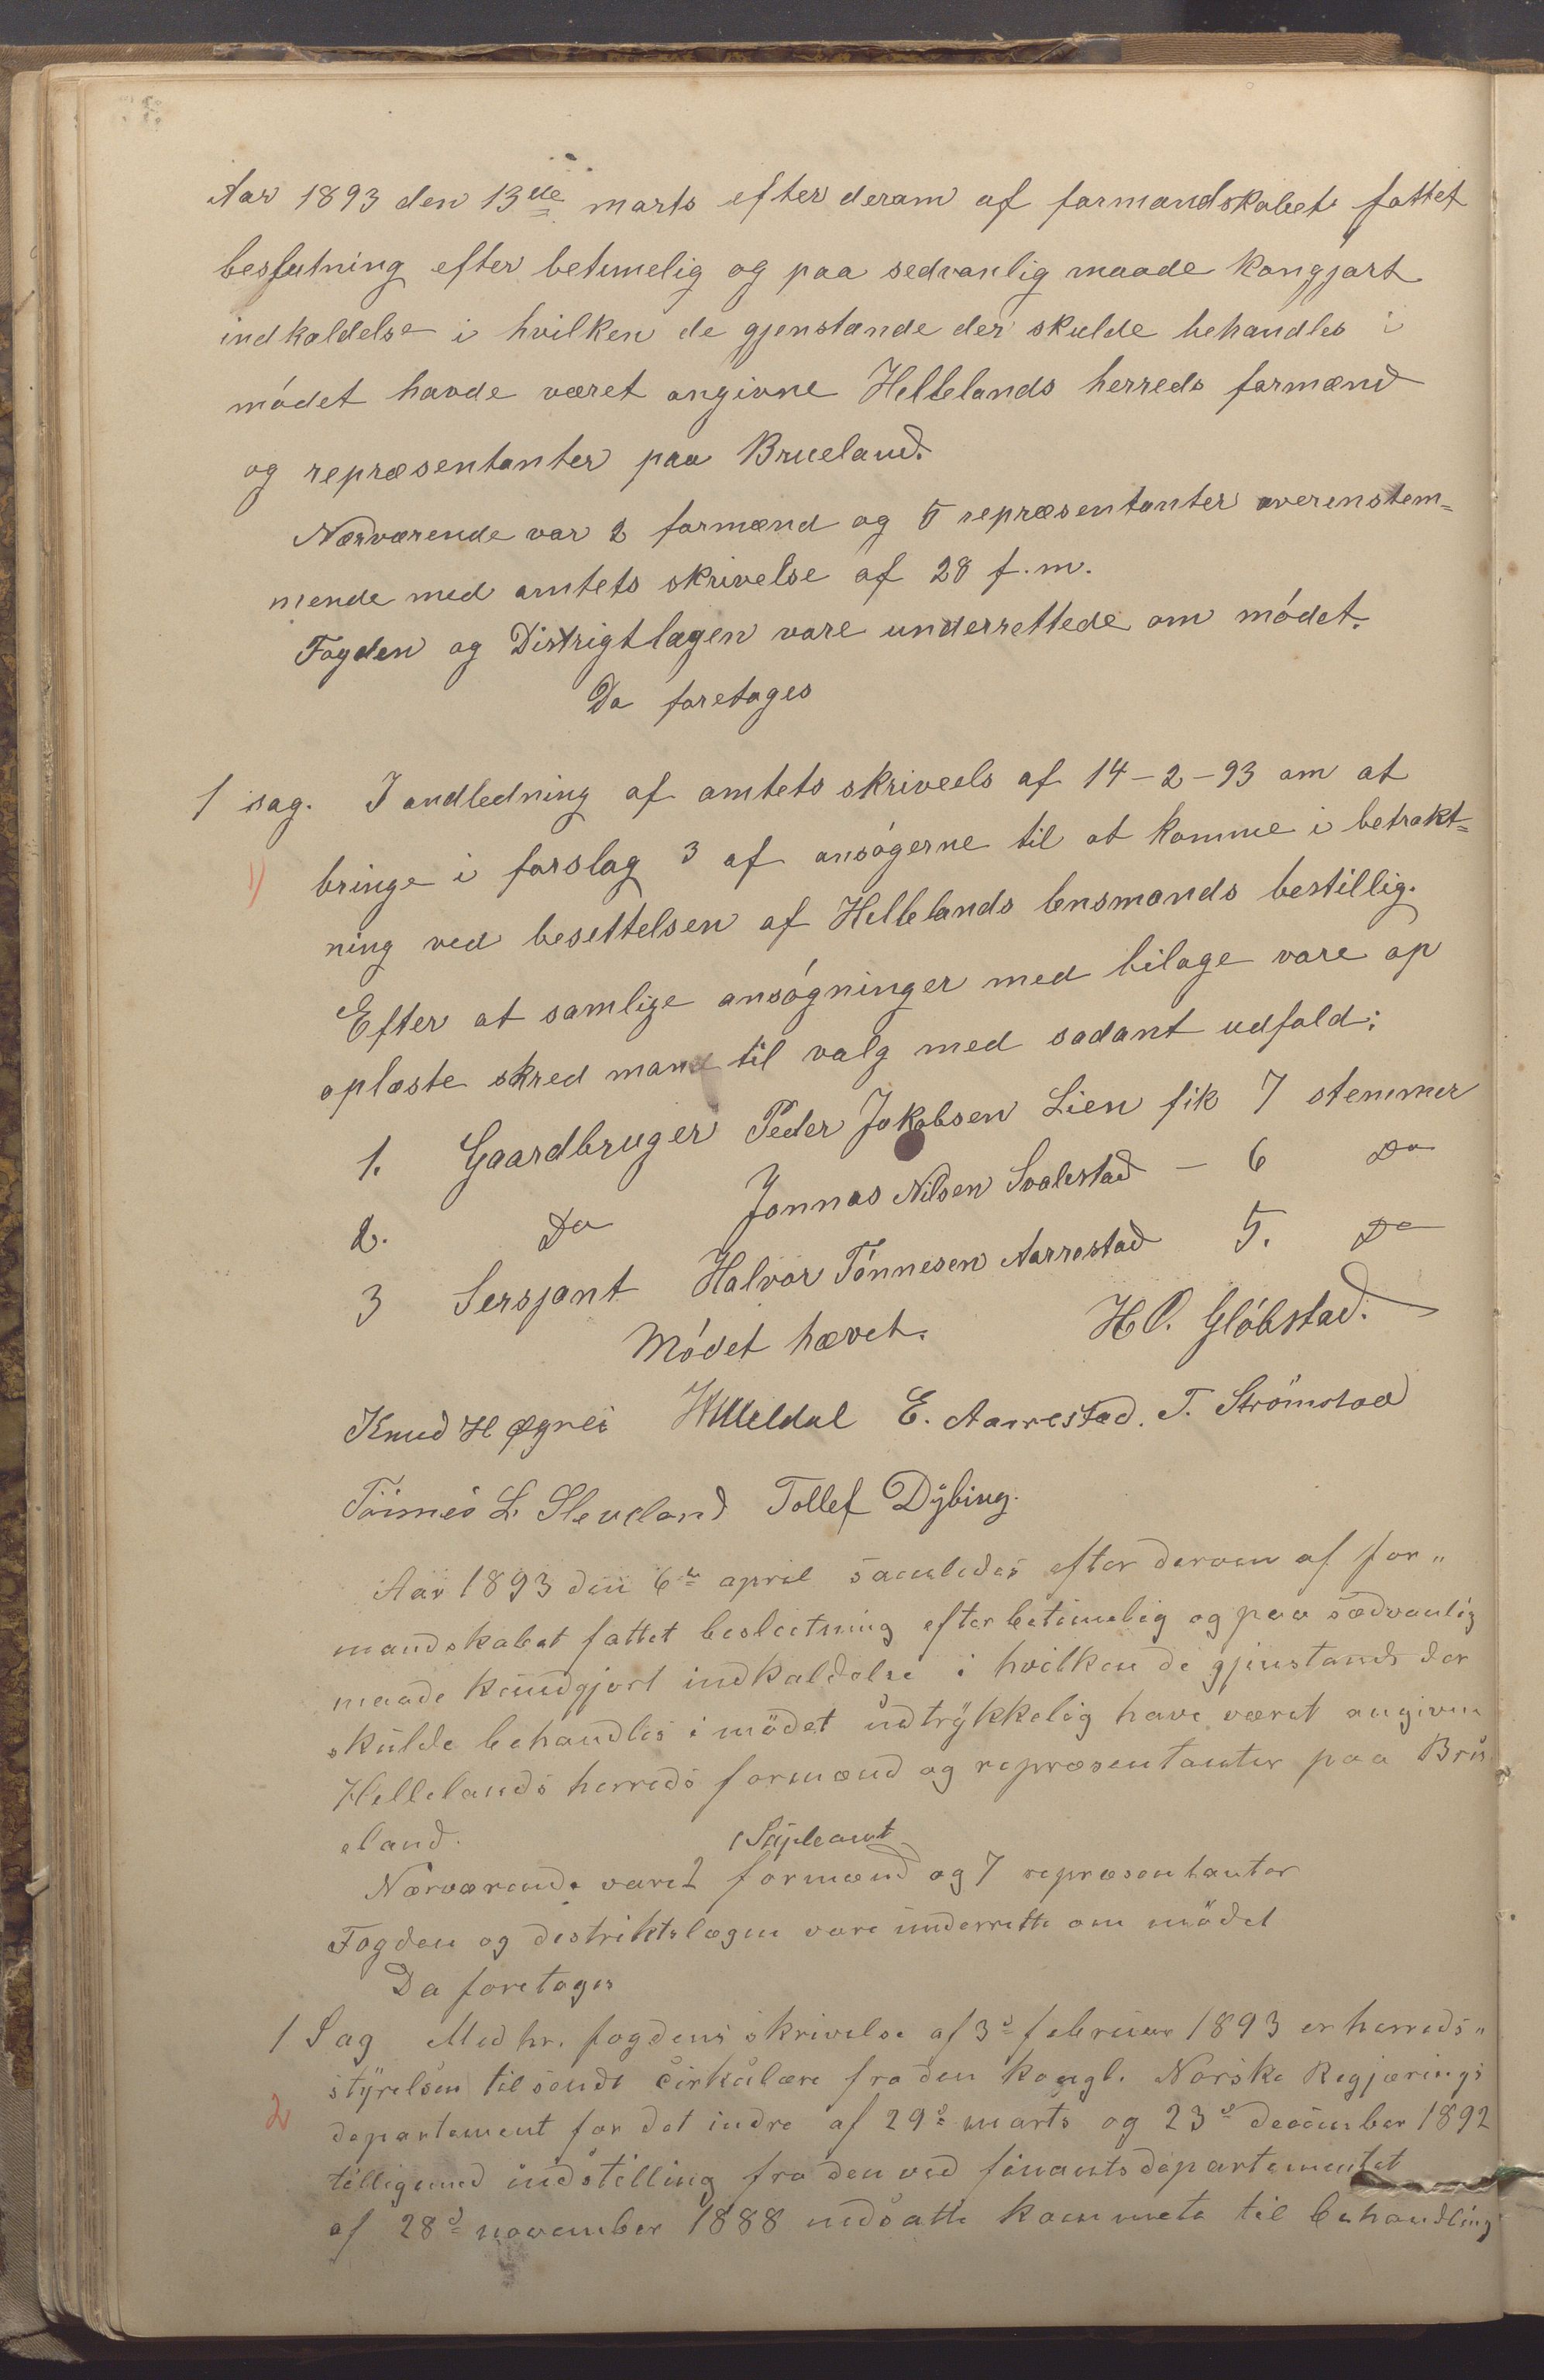 Aar 1893 den 13de marts efter derom af formandskabet fattet
beslutning efter betimelig og paa sedvanlig maade kongjørt
indkaldelse i hvilken de gjenstande der skulde behandles i
mødet havde været angivne Hellelands herreds formænd
og repræsentanter paa Brueland.
Nærværende var 2 formænd og 5 repræsentanter overenstem=
mende med amtets skrivelse af 28 f.m.
Fogden og Distrigtlægen vare underrettede om mødet.
Da foretages
1 sag. I andledning af amtets skrivels af 14-2-93 om at
1) bringe i forslag 3 af ansøgerne til at komme i betrakt=
ning ved besettelsen af Hellelands lensmands bestillig.
Efter at samlige ansøgninger med bilage vare op
oplæste skred man til valg med sadant udfald:
1. Gaardbruger Peder Jakobsen Lien fik 7 stemmer
2. Do Jonnas Nilsen Svalestad - 6 Do
3 Sersjant Halvor Tønnesen Aarrestad 5. Do
Mødet hævet. H O. Gløbstad.
Knud H Øgrei Meldal E. Aarrestad. T. Strömstad
Tönnes L. Sleveland Tollef Dybing.
Aar 1893 den 6te april samledes efter derom af for„
mandskabet fattet beslutning efter betimelig og paa sædvanlig
maade kundgjort indkaldelse i hvilken de gjenstande der
skulde behandles i mödet udtrykkelig have været angivne
Hellelands herreds formænd og repræsentanter paa Bru
eland.
1 Supleant
Nærværende vare 2 formænd og 7 repræsentanter
Fogden og distriktslægen vare underrette om mödet
Da foretages
1 Sag Med hr. fogdens skrivelse af 3d februar 1893 er herreds„
styrelsen tilsendt cirkulære fra den kongl. Norske Regjærings
2 departement for det indre af 29d marts og 23d december 1892
tilligemed indstilling fra den ved finantsdepartementet
af 28d november 1888 nedsatte kommete til behandling